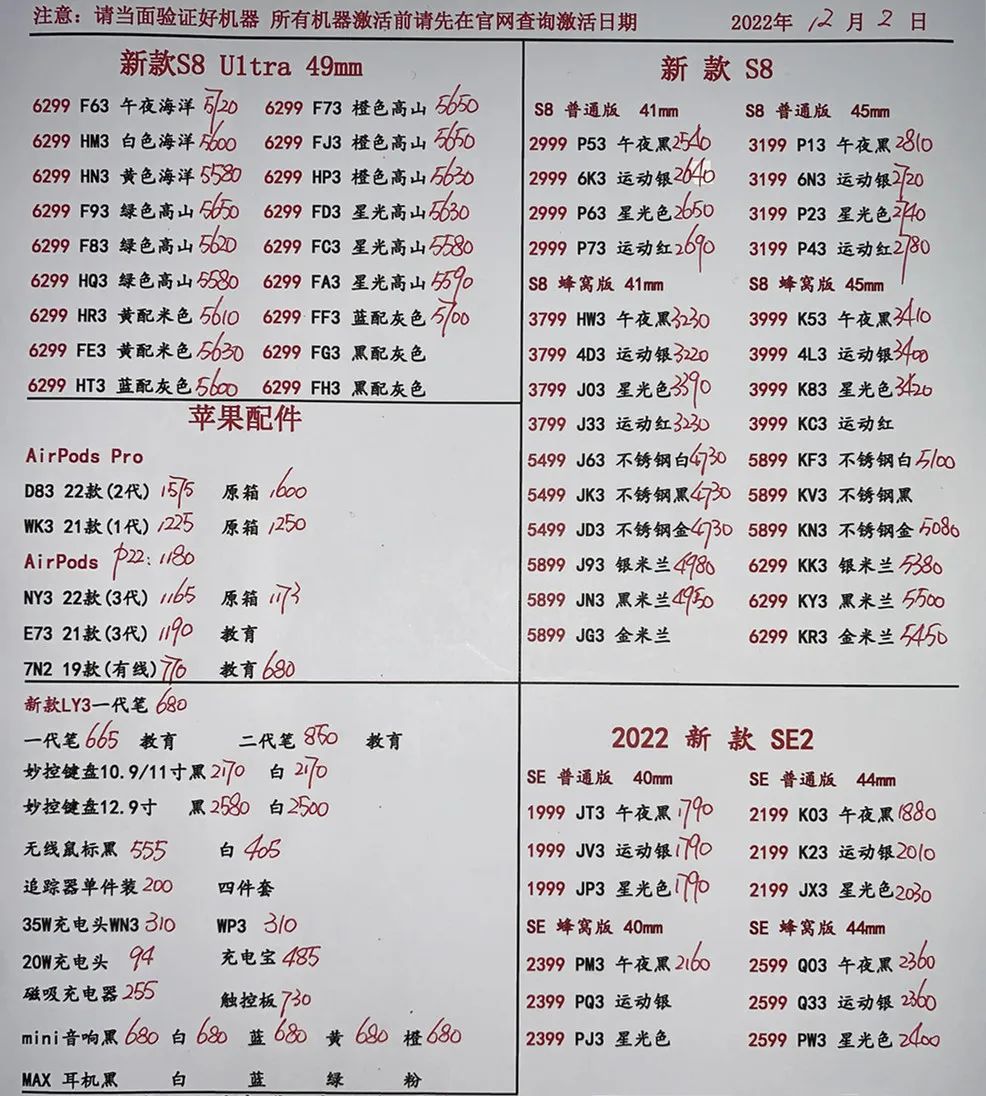 注意: 请当面验证好机器 所有机器激活前请先在官网查询激活日期 2022年 12 月 2 日
新款S8 Ultra 49mm
6299 F63 午夜海洋 5720 6299 F73 橙色高山 5650
6299 HM3 白色海洋 5600 6299 FJ3 橙色高山 5650
6299 HN3 黄色海洋 5580 6299 HP3 橙色高山 5630
6299 F93 绿色高山 5650 6299 FD3 星光高山 5630
6299 F83 绿色高山 5620 6299 FC3 星光高山 5580
6299 HQ3 绿色高山 5580 6299 FA3 星光高山 5590
6299 HR3 黄配米色 5610 6299 FF3 蓝配灰色 5700
6299 FE3 黄配米色 5630 6299 FG3 黑配灰色
6299 HT3 蓝配灰色 5600 6299 FH3 黑配灰色
苹果配件
AirPods Pro
D83 22款(2代) 1575 原箱 1600
WK3 21款(1代) 1225 原箱 1250
AirPods P22: 1180
NY3 22款(3代) 1165 原箱 1173
E73 21款(3代) 1190 教育
7N2 19款(有线) 770 教育 680
新款LY3一代笔 680
一代笔 665 教育 二代笔 850 教育
妙控键盘10.9/11寸黑 2170 白 2170
妙控键盘12.9寸 黑 2580 白 2500
无线鼠标黑 555 白 405
追踪器单件装 200 四件套
35W充电头WN3 310 WP3 310
20W充电头 94 充电宝 485
磁吸充电器 255 触控板 730
mini音响黑 680 白 680 蓝 680 黄 680 橙 680
MAX 耳机黑 白 蓝 绿 粉
新 款 S8
S8 普通版 41mm S8 普通版 45mm
2999 P53 午夜黑 2540 3199 P13 午夜黑 2810
2999 6K3 运动银 2640 3199 6N3 运动银 2720
2999 P63 星光色 2650 3199 P23 星光色 2740
2999 P73 运动红 2690 3199 P43 运动红 2780
S8 蜂窝版 41mm S8 蜂窝版 45mm
3799 HW3 午夜黑 3230 3999 K53 午夜黑 3410
3799 4D3 运动银 3220 3999 4L3 运动银 3400
3799 J03 星光色 3390 3999 K83 星光色 3420
3799 J33 运动红 3230 3999 KC3 运动红
5499 J63 不锈钢白 4730 5899 KF3 不锈钢白 5100
5499 JK3 不锈钢黑 4730 5899 KV3 不锈钢黑
5499 JD3 不锈钢金 4730 5899 KN3 不锈钢金 5080
5899 J93 银米兰 4980 6299 KK3 银米兰 5380
5899 JN3 黑米兰 4950 6299 KY3 黑米兰 5500
5899 JG3 金米兰 6299 KR3 金米兰 5450
2022 新 款 SE2
SE 普通版 40mm SE 普通版 44mm
1999 JT3 午夜黑 1790 2199 K03 午夜黑 1880
1999 JV3 运动银 1790 2199 K23 运动银 2010
1999 JP3 星光色 1790 2199 JX3 星光色 2030
SE 蜂窝版 40mm SE 蜂窝版 44mm
2399 PM3 午夜黑 2160 2599 Q03 午夜黑 2360
2399 PQ3 运动银 2599 Q33 运动银 2360
2399 PJ3 星光色 2599 PW3 星光色 2400